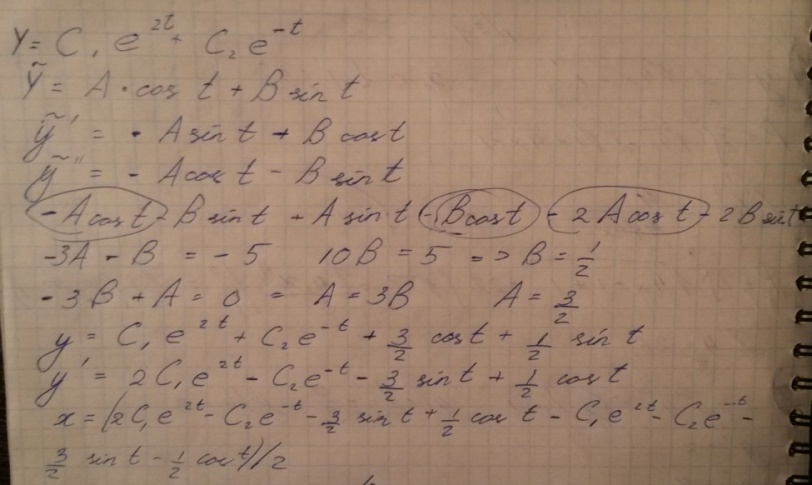 Y = C₁e^{2t} + C₂e^{-t}
Ỹ = A·cos t + B sin t
ỹ' = - A sin t + B cos t
ỹ'' = - A cos t - B sin t
-A cos t - B sin t + A sin t - B cos t - 2A cos t - 2B sin t
-3A - B = -5 10B = 5 => B = 1/2
-3B + A = 0 = A = 3B A = 3/2
y = C₁e^{2t} + C₂e^{-t} + 3/2 cos t + 1/2 sin t
y' = 2C₁e^{2t} - C₂e^{-t} - 3/2 sin t + 1/2 cos t
x = (2C₁e^{2t} - C₂e^{-t} - 3/2 sin t + 1/2 cos t - C₁e^{2t} - C₂e^{-t} -
3/2 sin t - 1/2 cos t)/2